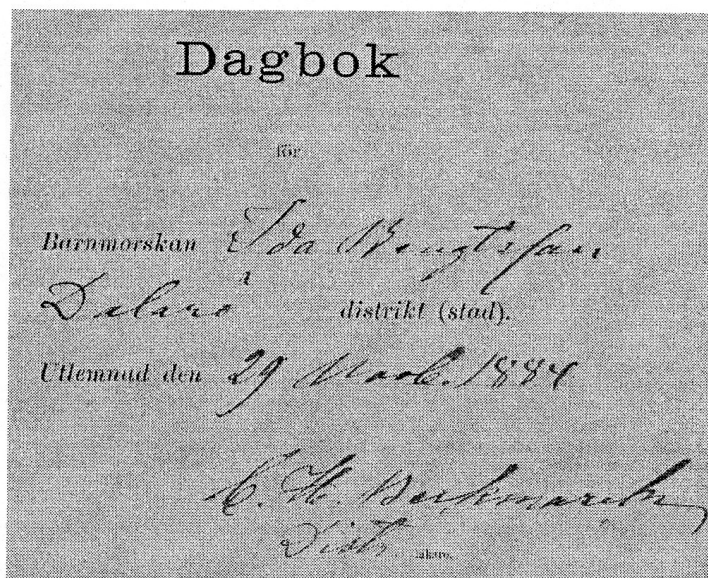 Dagbok
för
Barnmorskan Ida Bengtsson
Dalarö distrikt (stad).
Utlemnad den 29 Novb. 1884
C. H.
Distr. läkare.